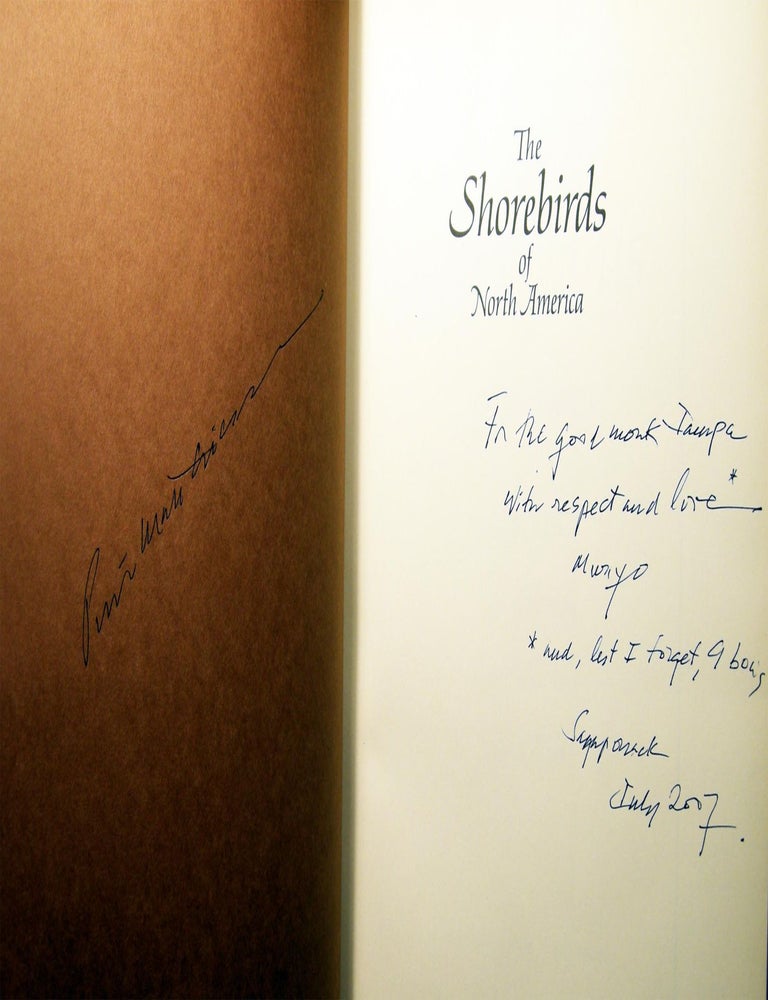 Peter Matthiessen
The
Shorebirds
of
North America
For the good monk Tampa
With respect and love*
Muryo
* and, lest I forget, 9 bows
Sagaponack
July 2007.